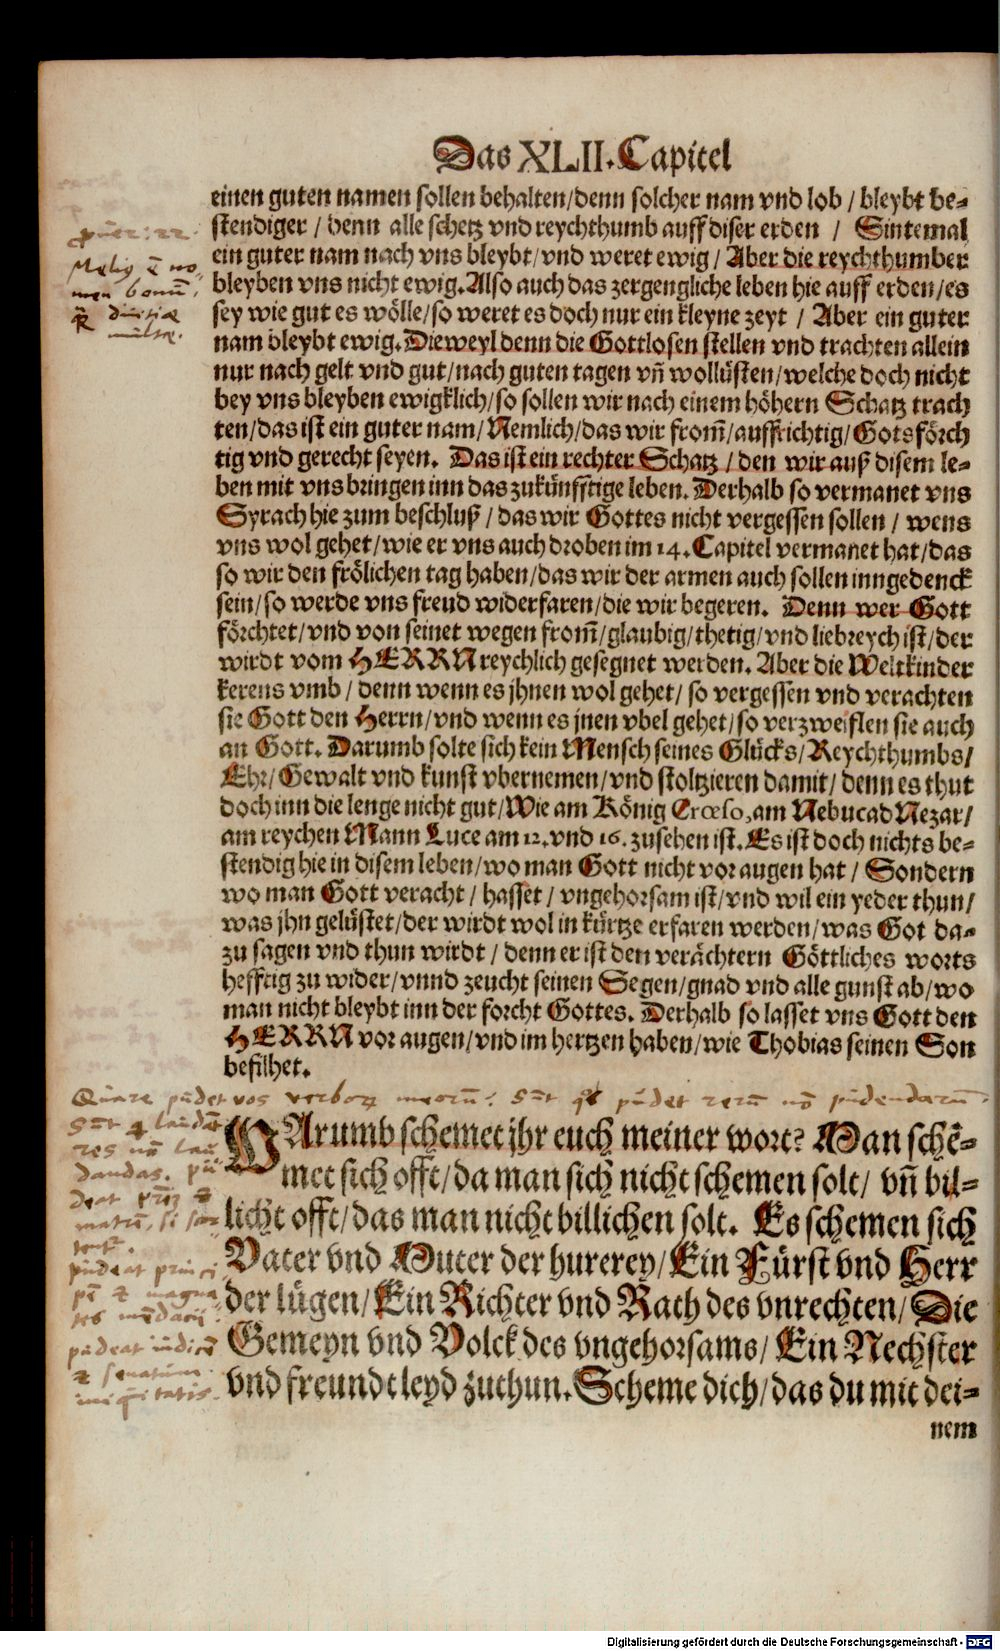 Das XLII. Capitel
einen guten namen sollen behalten/denn solcher nam vnd lob / bleybt be-
stendiger / denn alle schetz vnd reychthumb auff diser erden / Sintemal
ein guter nam nach vns bleybt/vnd weret ewig / Aber die reychthumber
bleyben vns nicht ewig. Also auch das zergengliche leben hie auff erden/es
sey wie gut es wölle/so weret es doch nur ein kleyne zeyt / Aber ein guter
nam bleybt ewig. Dieweyl denn die Gottlosen stellen vnd trachten allein
nur nach gelt vnd gut/nach guten tagen vñ wollüsten/welche doch nicht
bey vns bleyben ewigklich/so sollen wir nach einem höhern Schatz trach
ten/das ist ein guter nam/Nemlich/das wir from̃/auffrichtig/Gotsförch
tig vnd gerecht seyen. Das ist ein rechter Schatz / den wir auß disem le-
ben mit vns bringen inn das zukünfftige leben. Derhalb so vermanet vns
Syrach hie zum beschluß / das wir Gottes nicht vergessen sollen / wens
vns wol gehet/wie er vns auch droben im 14. Capitel vermanet hat/das
so wir den frölichen tag haben/das wir der armen auch sollen inngedenck
sein/so werde vns freud widerfaren/die wir begeren. Denn wer Gott
förchtet/vnd von seinet wegen from̃/glaubig/thetig/vnd liebreych ist/der
wirdt vom HERRN reychlich gesegnet werden. Aber die Weltkinder
kerens vmb / denn wenn es jhnen wol gehet/ so vergessen vnd verachten
sie Gott den Herrn/vnd wenn es jnen vbel gehet/so verzweiflen sie auch
an Gott. Darumb solte sich kein Mensch seines Glücks/Reychthumbs/
Ehr/Gewalt vnd kunst vbernemen/vnd stoltzieren damit/denn es thut
doch inn die lenge nicht gut/Wie am König Crœso, am NebucadNezar/
am reychen Mann Luce am 12. vnd 16. zusehen ist. Es ist doch nichts be-
stendig hie in disem leben/wo man Gott nicht vor augen hat / Sondern
wo man Gott veracht / hasset / vngehorsam ist/vnd wil ein yeder thun/
was jhn gelüstet/der wirdt wol in kürtze erfaren werden/was Got da-
zu sagen vnd thun wirdt / denn er ist den verächtern Göttliches worts
hefftig zu wider/vnnd zeucht seinen Segen/gnad vnd alle gunst ab/wo
man nicht bleybt inn der forcht Gottes. Derhalb so lasset vns Gott den
HERRN vor augen/vnd im hertzen haben/wie Thobias seinen Son
befilhet.
Prouer: 22.
Meliꝰ ē no-
men bonū,
diuitiæ
multæ.
Quare pudet vos verborū meorū? Sūt pudet rerū nō pudendarū.
WArumb schemet jhr euch meiner wort? Man schē-
met sich offt/da man sich nicht schemen solt/ vñ bil-
licht offt/das man nicht billichen solt. Es schemen sich
Vater vnd Muter der hurerey/Ein Fürst vnd Herr
der lügen/Ein Richter vnd Rath des vnrechten/Die
Gemeyn vnd Volck des vngehorsams/Ein Nechster
vnd freundt leyd zuthun. Scheme dich/das du mit dei-
nem
res nō lau
dandas. pu
deat
pudeat princi
pē & magna
tes mēdacii.
pudeat iudicē
& senatum
iniquitatis.
Digitalisierung gefördert durch die Deutsche Forschungsgemeinschaft - DFG